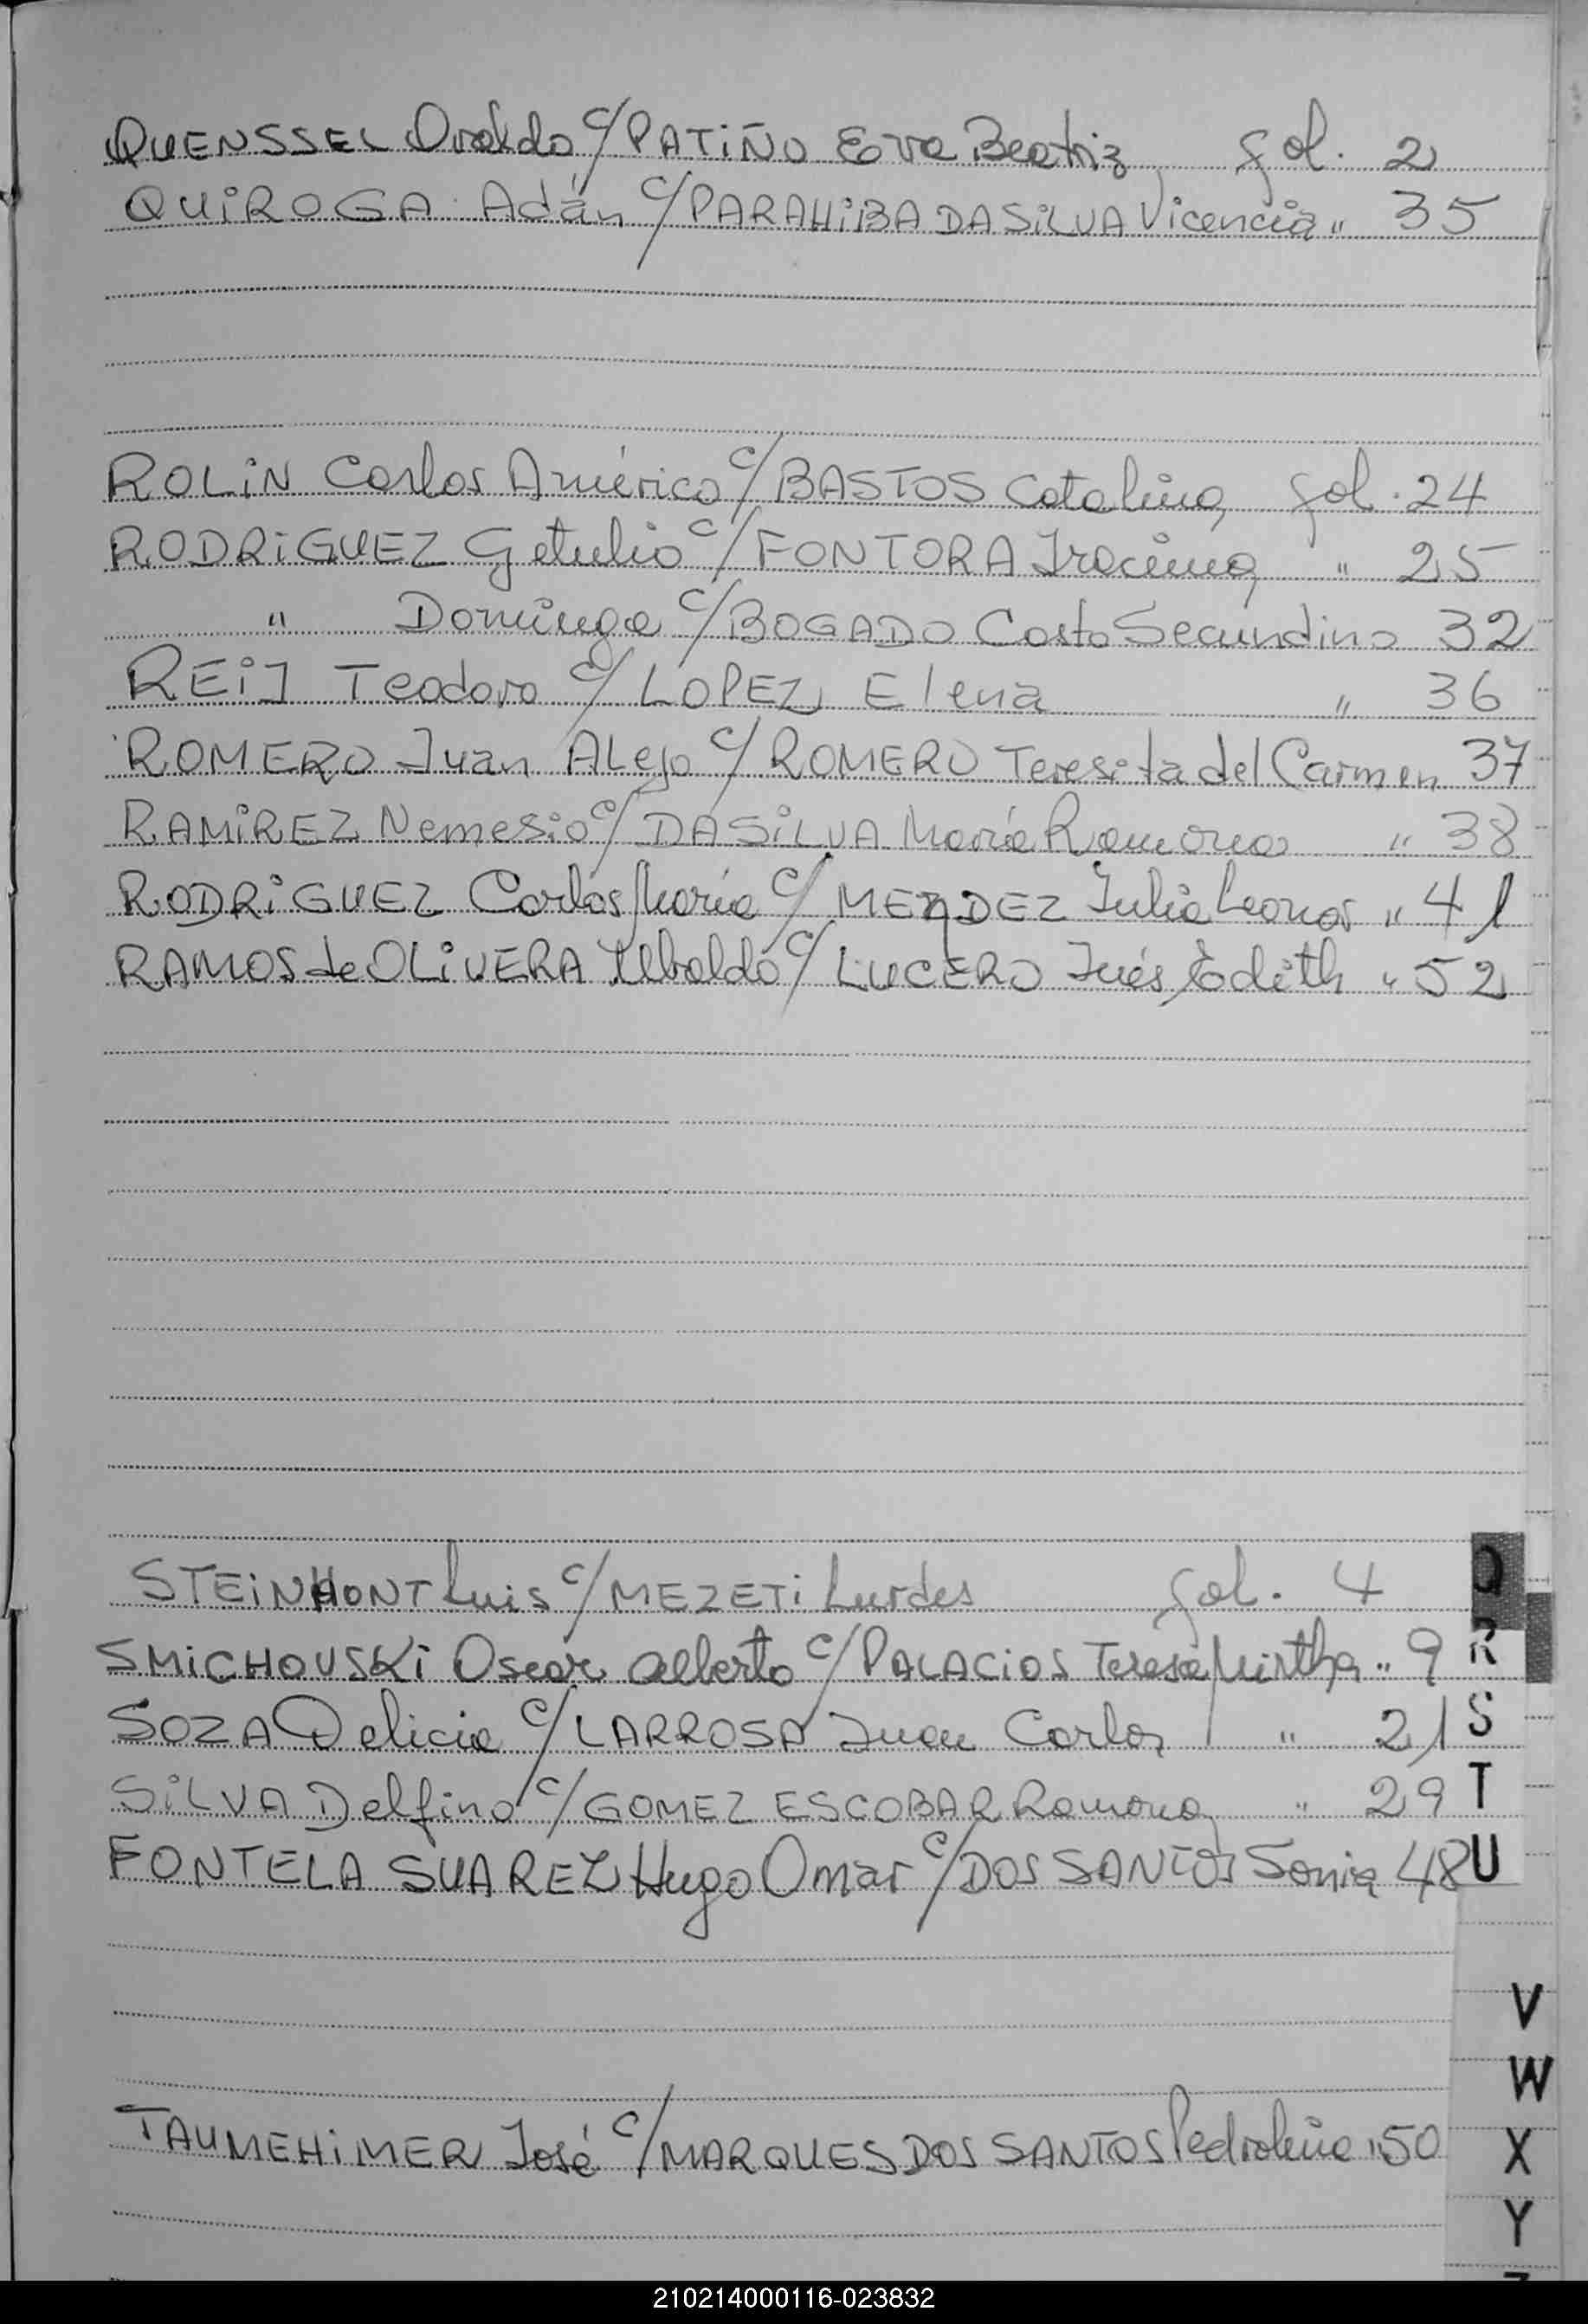 QUENSSEL Ovaldo c/ PATIÑO Eva Beatriz fol. 2
QUIROGA Adán c/ PARAHIBA DA SILVA Vicencia " 35
ROLIN Carlos Américo c/ BASTOS Catalina fol. 24
RODRIGUEZ Getulio c/ FONTORA Iracema " 25
" Dominga c/ BOGADO Costa Secundino 32
REIJ Teodoro c/ LOPEZ Elena " 36
ROMERO Juan ALejo c/ ROMERO Teresita del Carmen 37
RAMIREZ Nemesio c/ DA SILVA María Ramona " 38
RODRIGUEZ Carlos María c/ MENDEZ Julia Leonor " 41
RAMOS de OLIVERA Ubaldo c/ LUCERO Inés Edith " 52
STEINHONT Luis c/ MEZETI Lurdes fol. 4
SMICHOUSKI Oscar Alberto c/ PALACIOS Teresa Mirtha " 9
SOZA Delicia c/ LARROSA Juan Carlos " 21
SILVA Delfino c/ GOMEZ ESCOBAR Ramona " 29
FONTELA SUAREZ Hugo Omar c/ DOS SANTOS Sonia 48
TAUMEHIMER José c/ MARQUES DOS SANTOS Pedrolina " 50
Q
R
S
T
U
V
W
X
Y
210214000116-023832